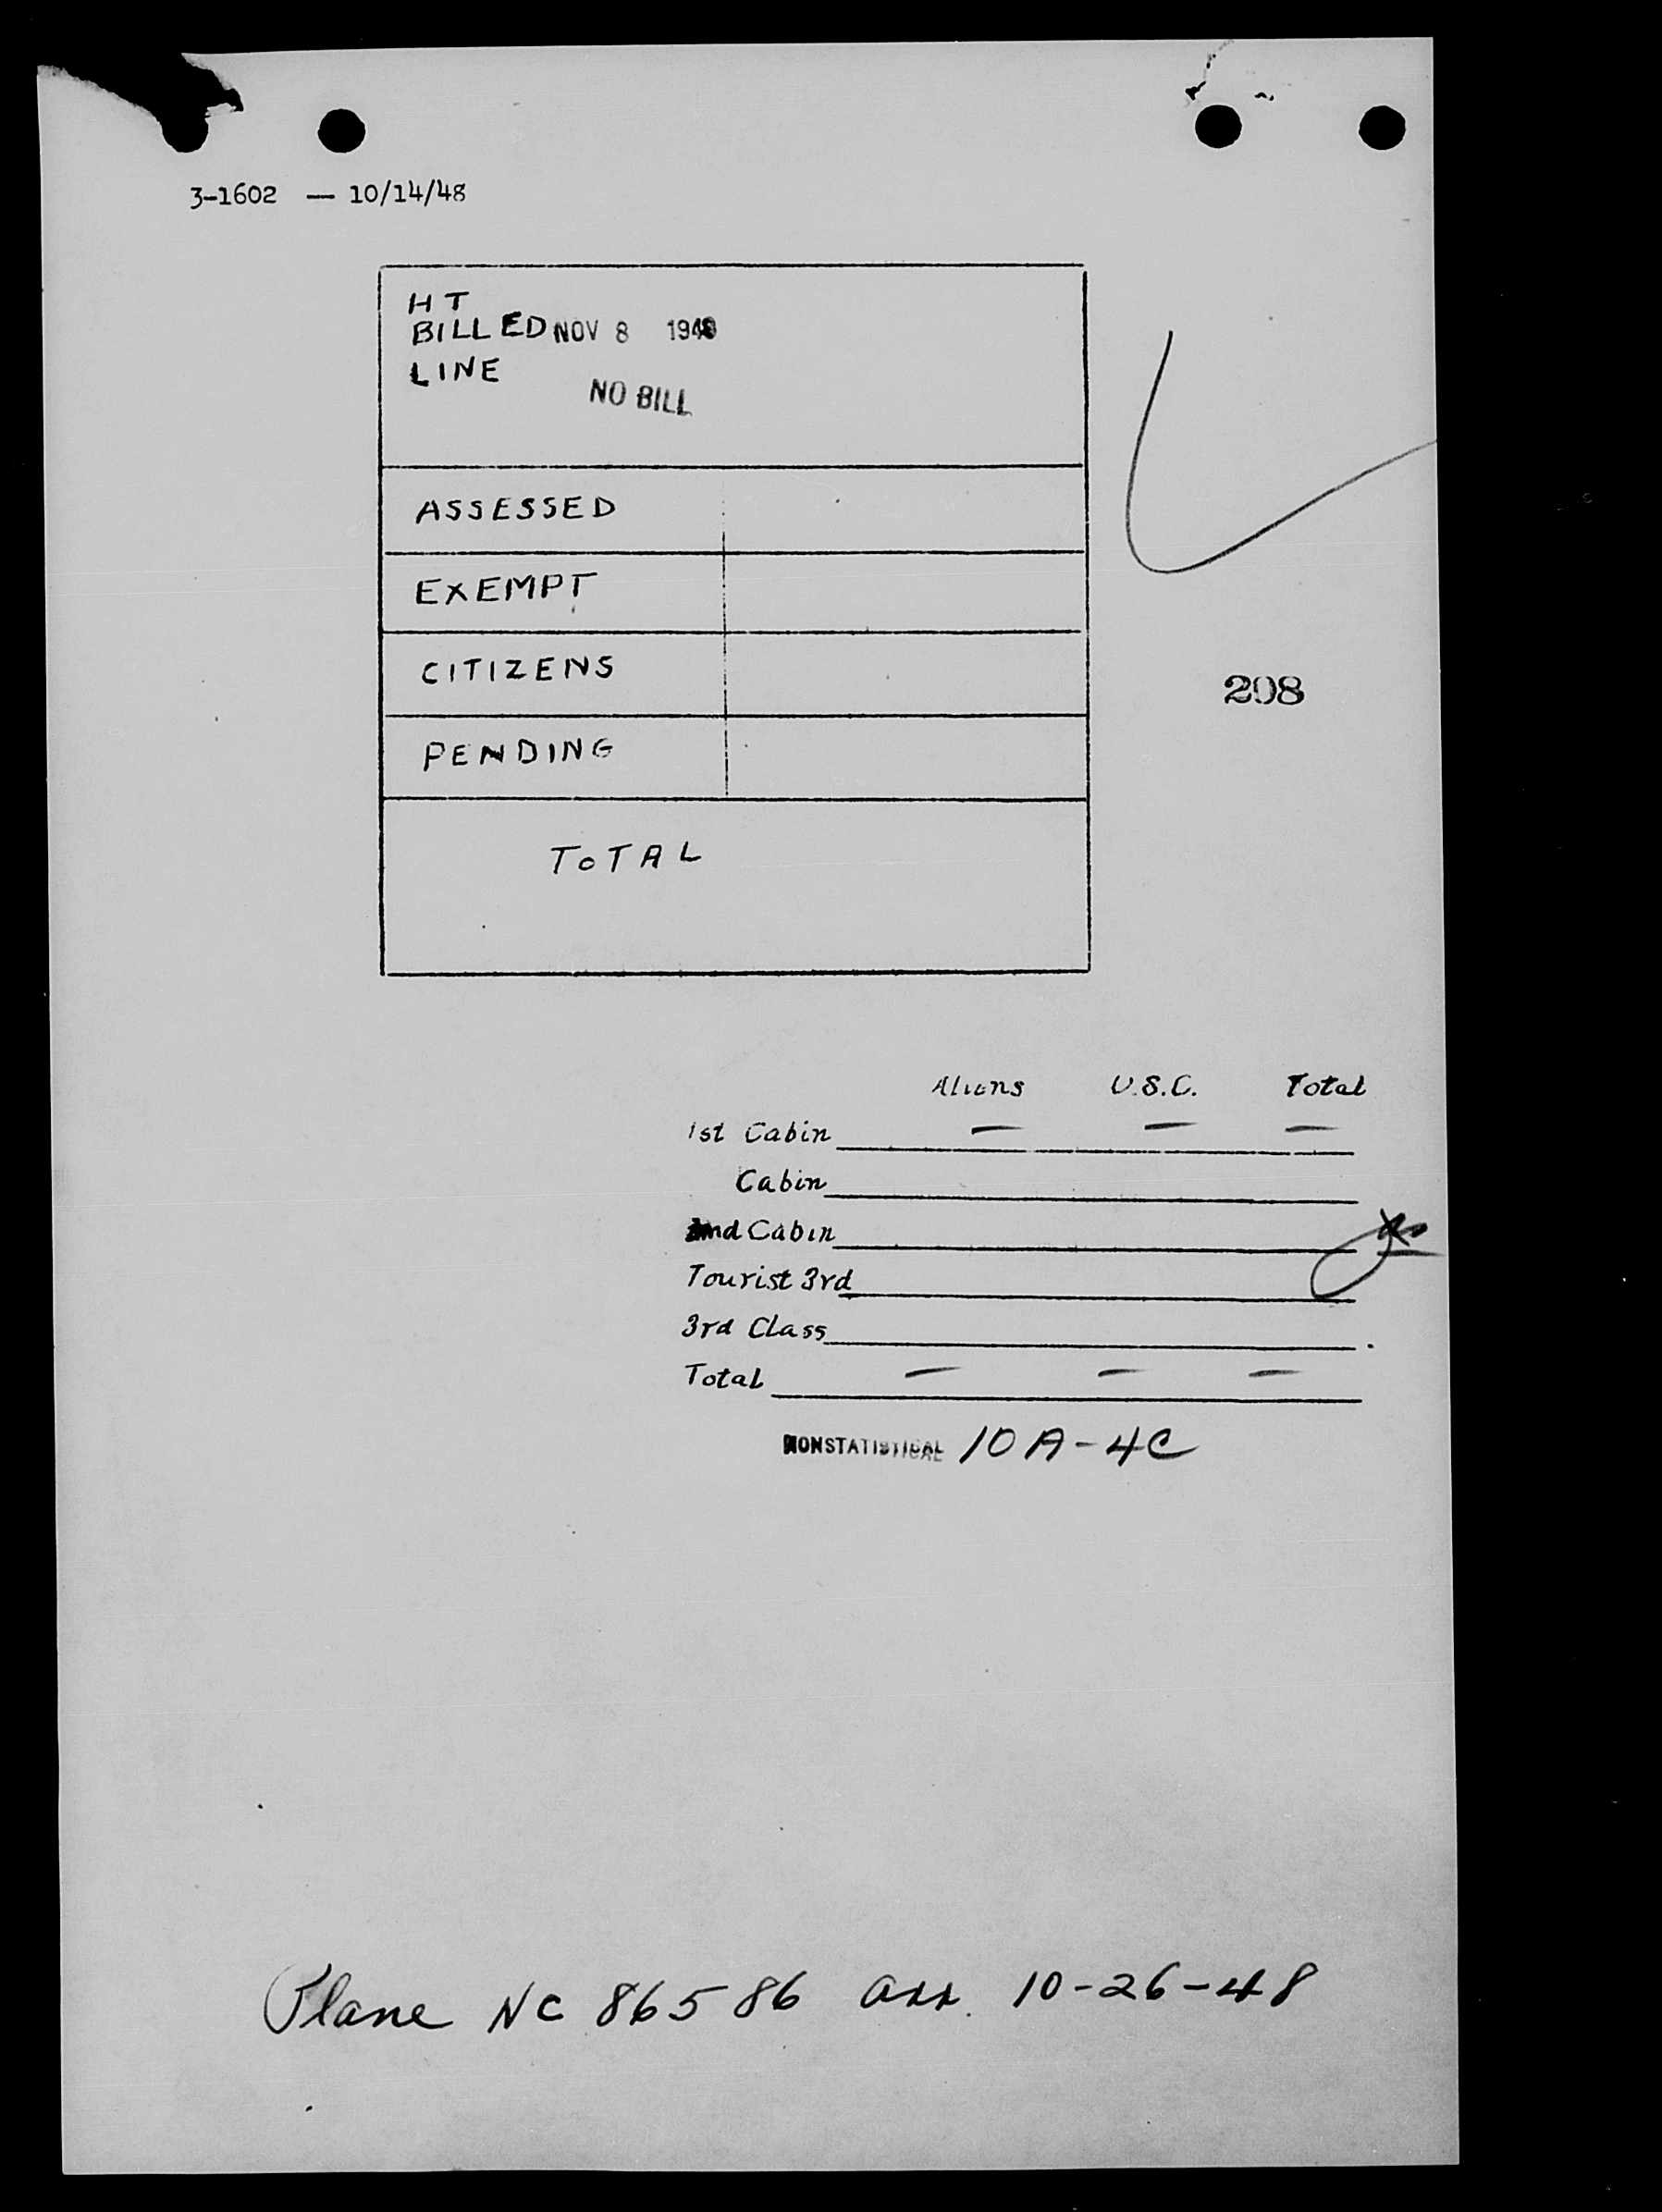 3-1602 — 10/14/48
HT
BILLED NOV 8 1948
LINE
NO BILL
ASSESSED
EXEMPT
CITIZENS
208
PENDING
TOTAL
Aliens U.S.C. Total
1st Cabin — — —
Cabin
2nd Cabin
Tourist 3rd
3rd Class
Total — — —
NONSTATISTICAL 10A-4C
Plane NC 86586 arr. 10-26-48